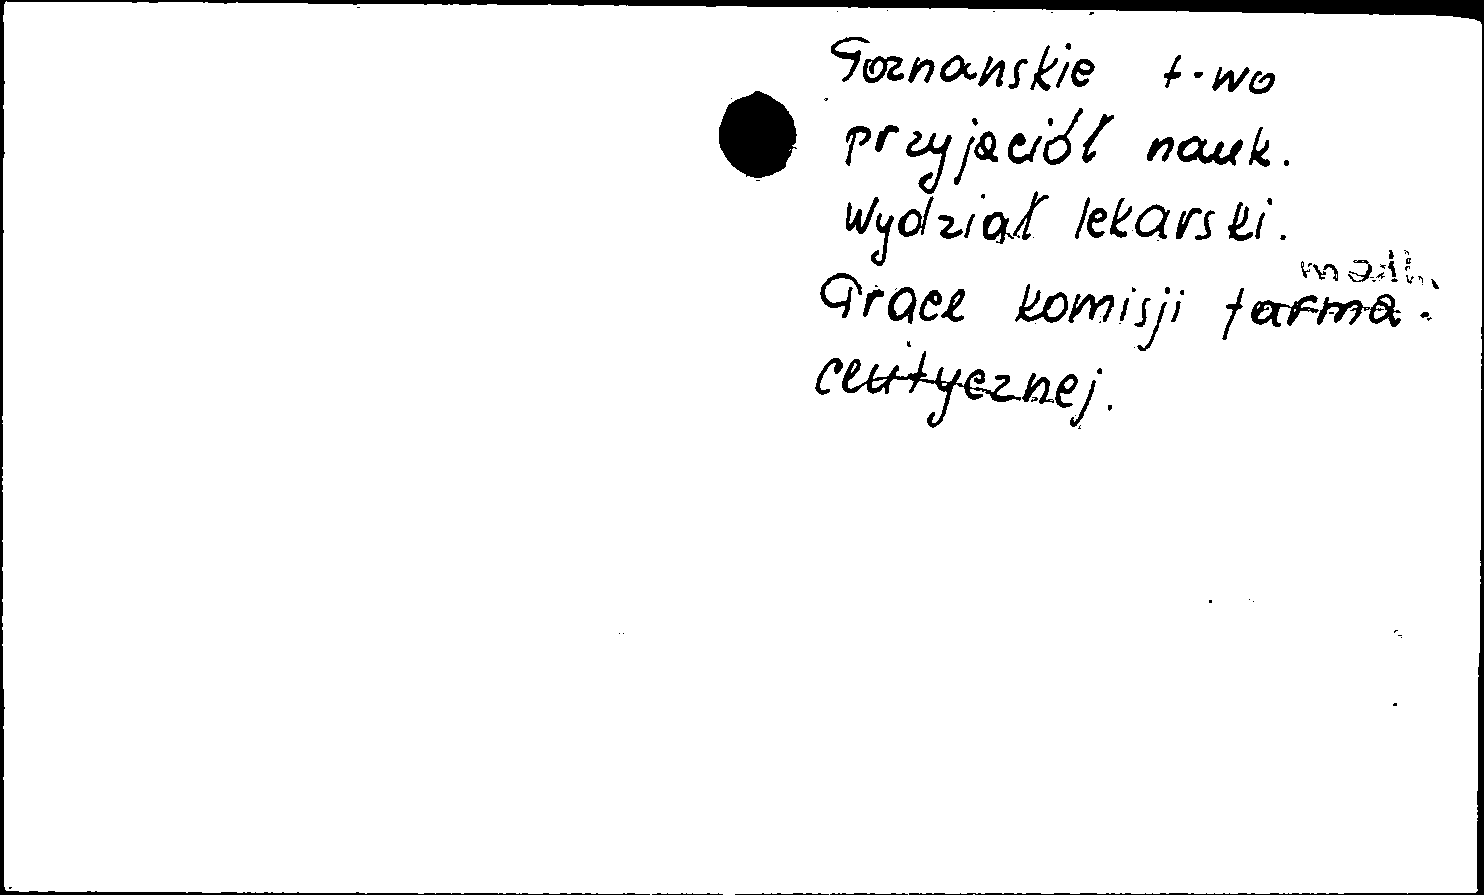 Poznanskie t-wo
przyjaciół nauk.
Wydział lekarski.
Prace komisji farma-
ceutycznej.